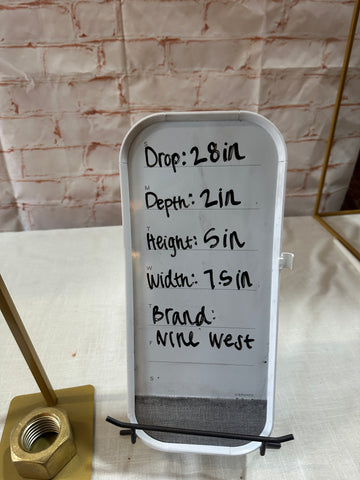 S
Drop: 28in
M
Depth: 2in
T
Height: 5in
W
Width: 7.5in
T
Brand:
F
Nine West
S